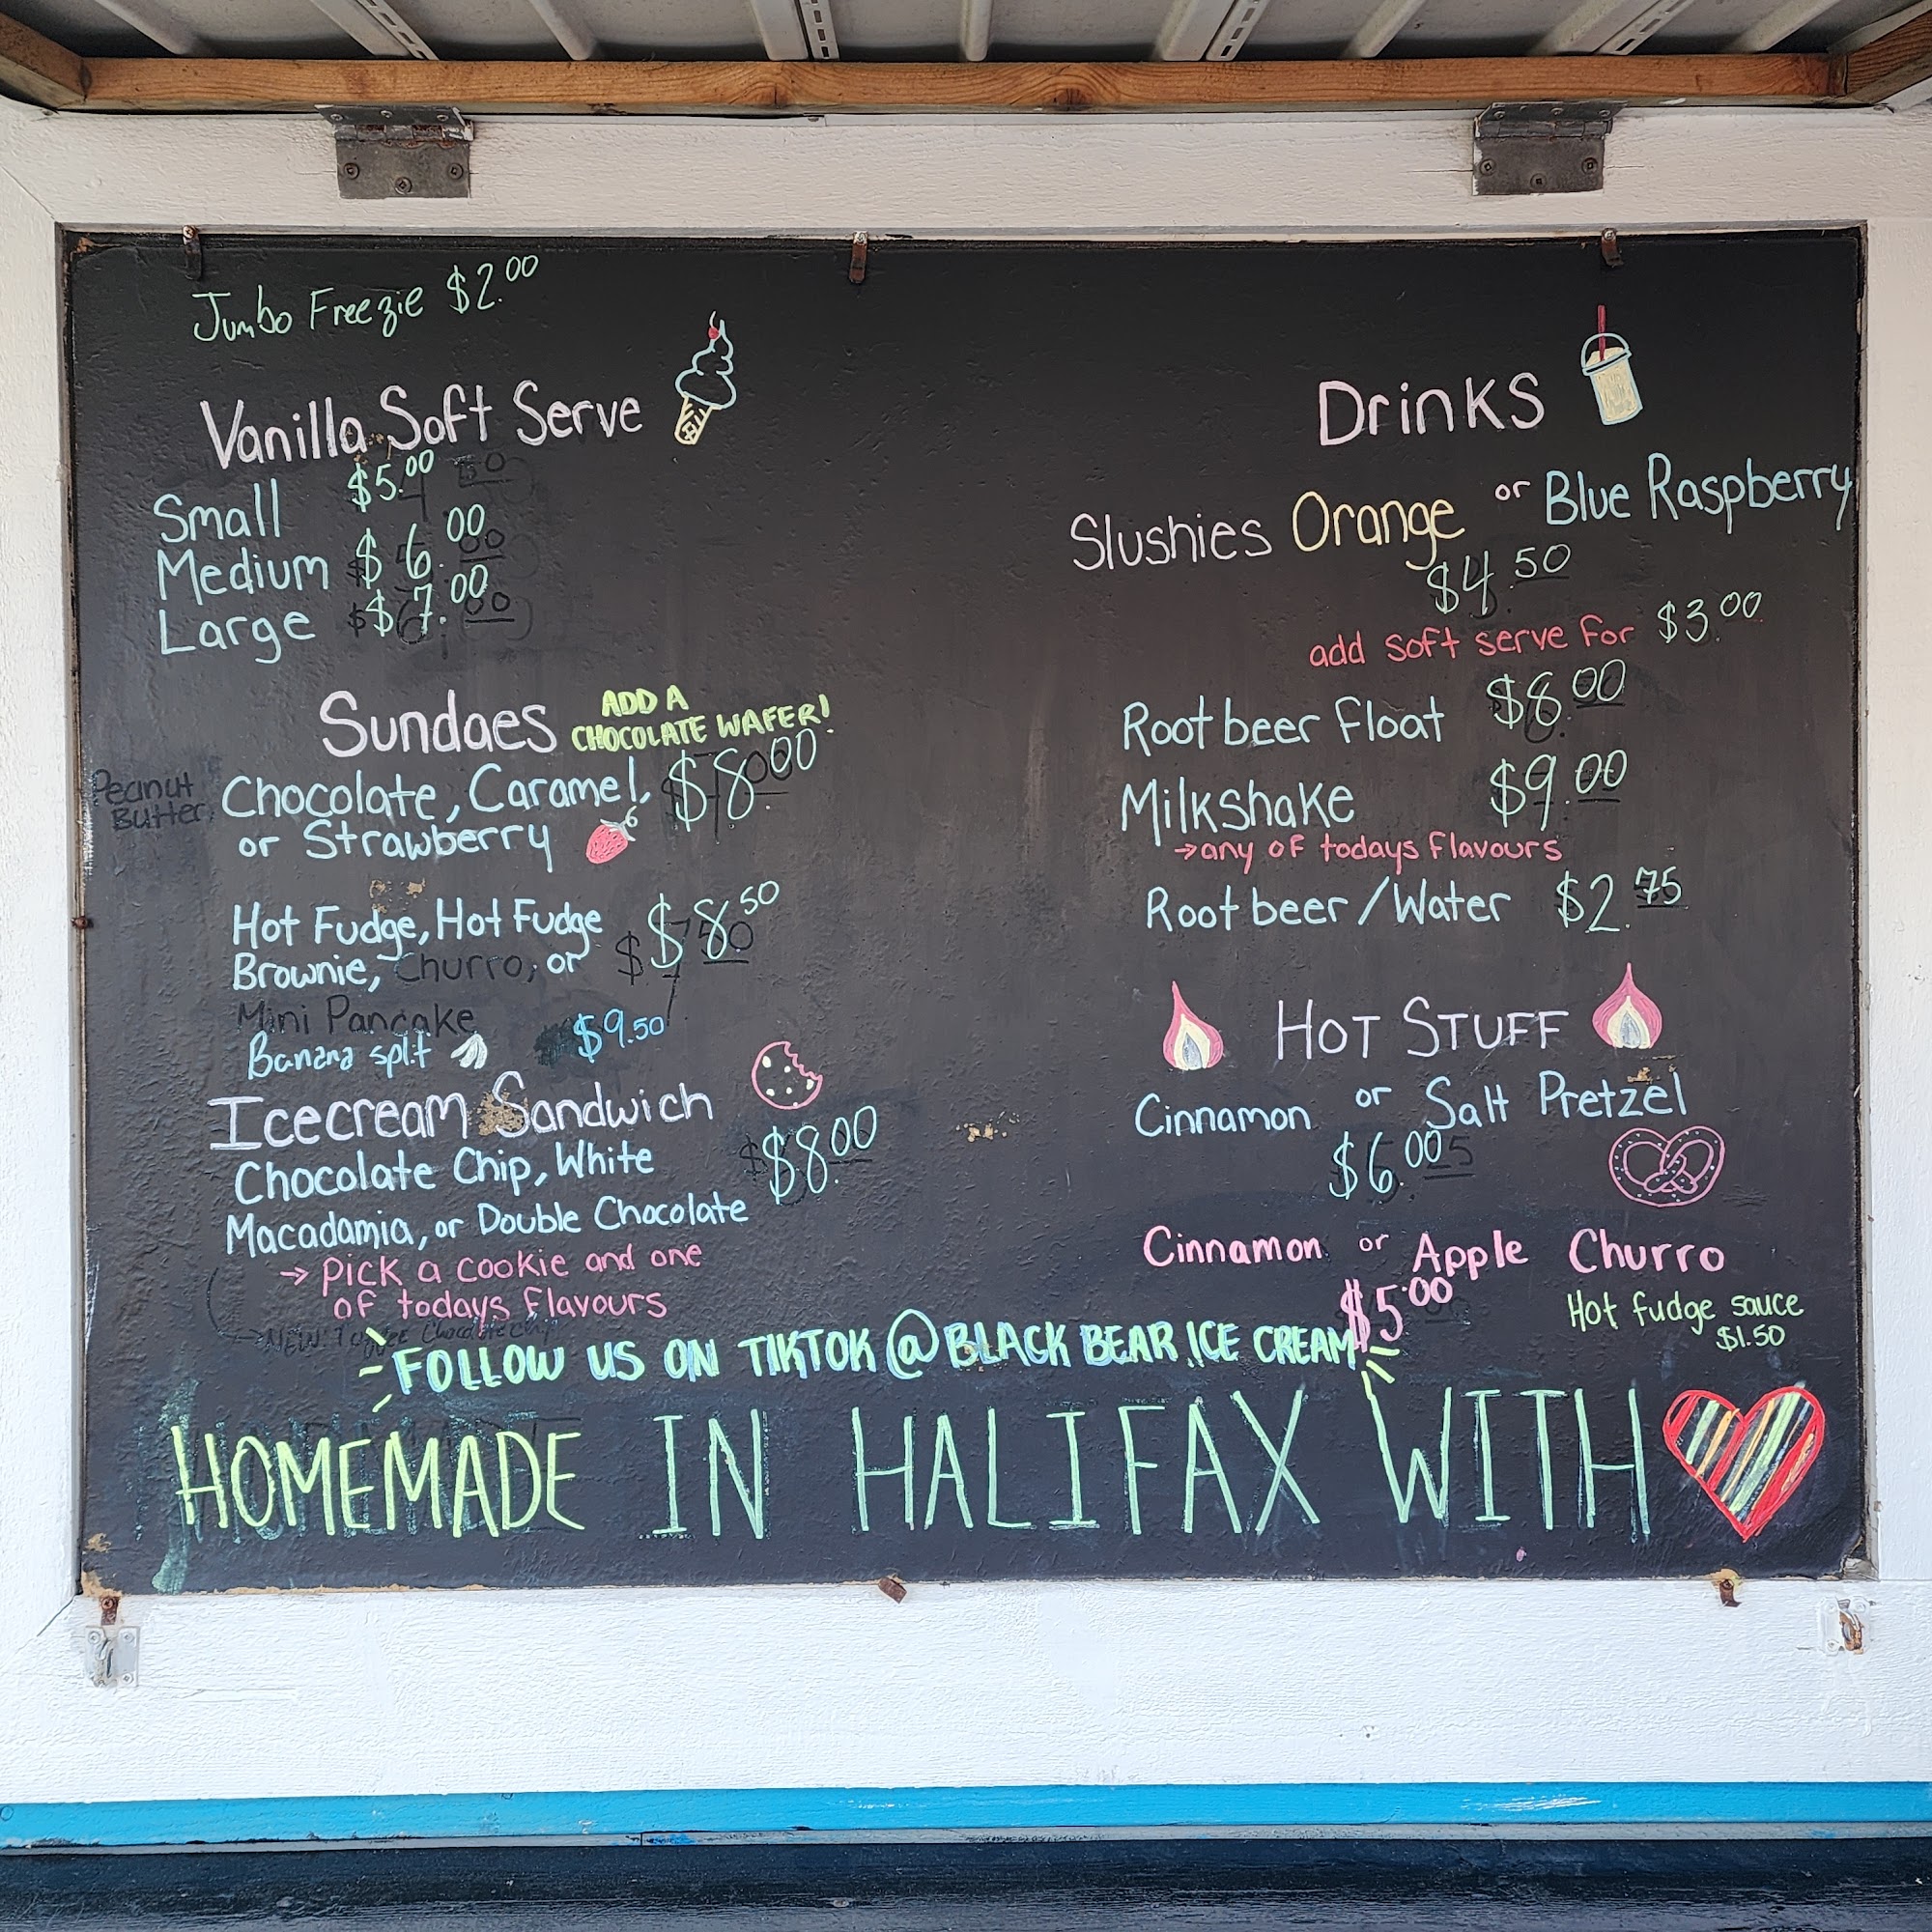 Jumbo Freezie $2.00
Vanilla Soft Serve
Small $5.00
Medium $6.00
Large $7.00
Sundaes ADD A
CHOCOLATE WAFER!
Peanut
Butter,
Chocolate, Caramel, $8.00
or Strawberry
Hot Fudge, Hot Fudge $8.50
Brownie, Churro, or
Mini Pancake
Banana split $9.50
Icecream Sandwich
Chocolate Chip, White $8.00
Macadamia, or Double Chocolate
→ Pick a cookie and one
of todays flavours
Drinks
Slushies Orange or Blue Raspberry
$4.50
add soft serve for $3.00
Root beer float $8.00
Milkshake $9.00
→ any of todays flavours
Root beer/Water $2.75
HOT STUFF
Cinnamon or Salt Pretzel
$6.00
Cinnamon or Apple Churro
$5.00
Hot fudge sauce
$1.50
FOLLOW US ON TIKTOK @BLACK BEAR ICE CREAM
HOMEMADE IN HALIFAX WITH